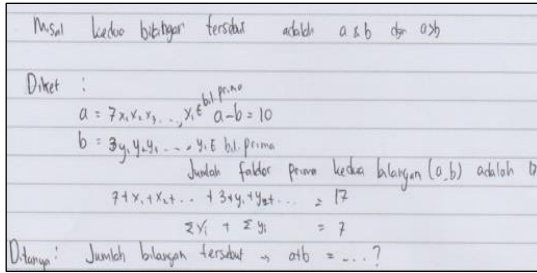 Misal kedua bilangan tersebut adalah a & b dgn a>b
Diket :
a = 7x₁x₂x₃..., xᵢ ∈ bil. prima a-b = 10
b = 3y₁y₂y₃... , yᵢ ∈ bil. prima
Jumlah faktor prima kedua bilangan (a,b) adalah 17
7+x₁+x₂+... + 3+y₁+y₂+... = 17
Σxᵢ + Σyᵢ = 7
Ditanya : Jumlah bilangan tersebut → a+b = ....?